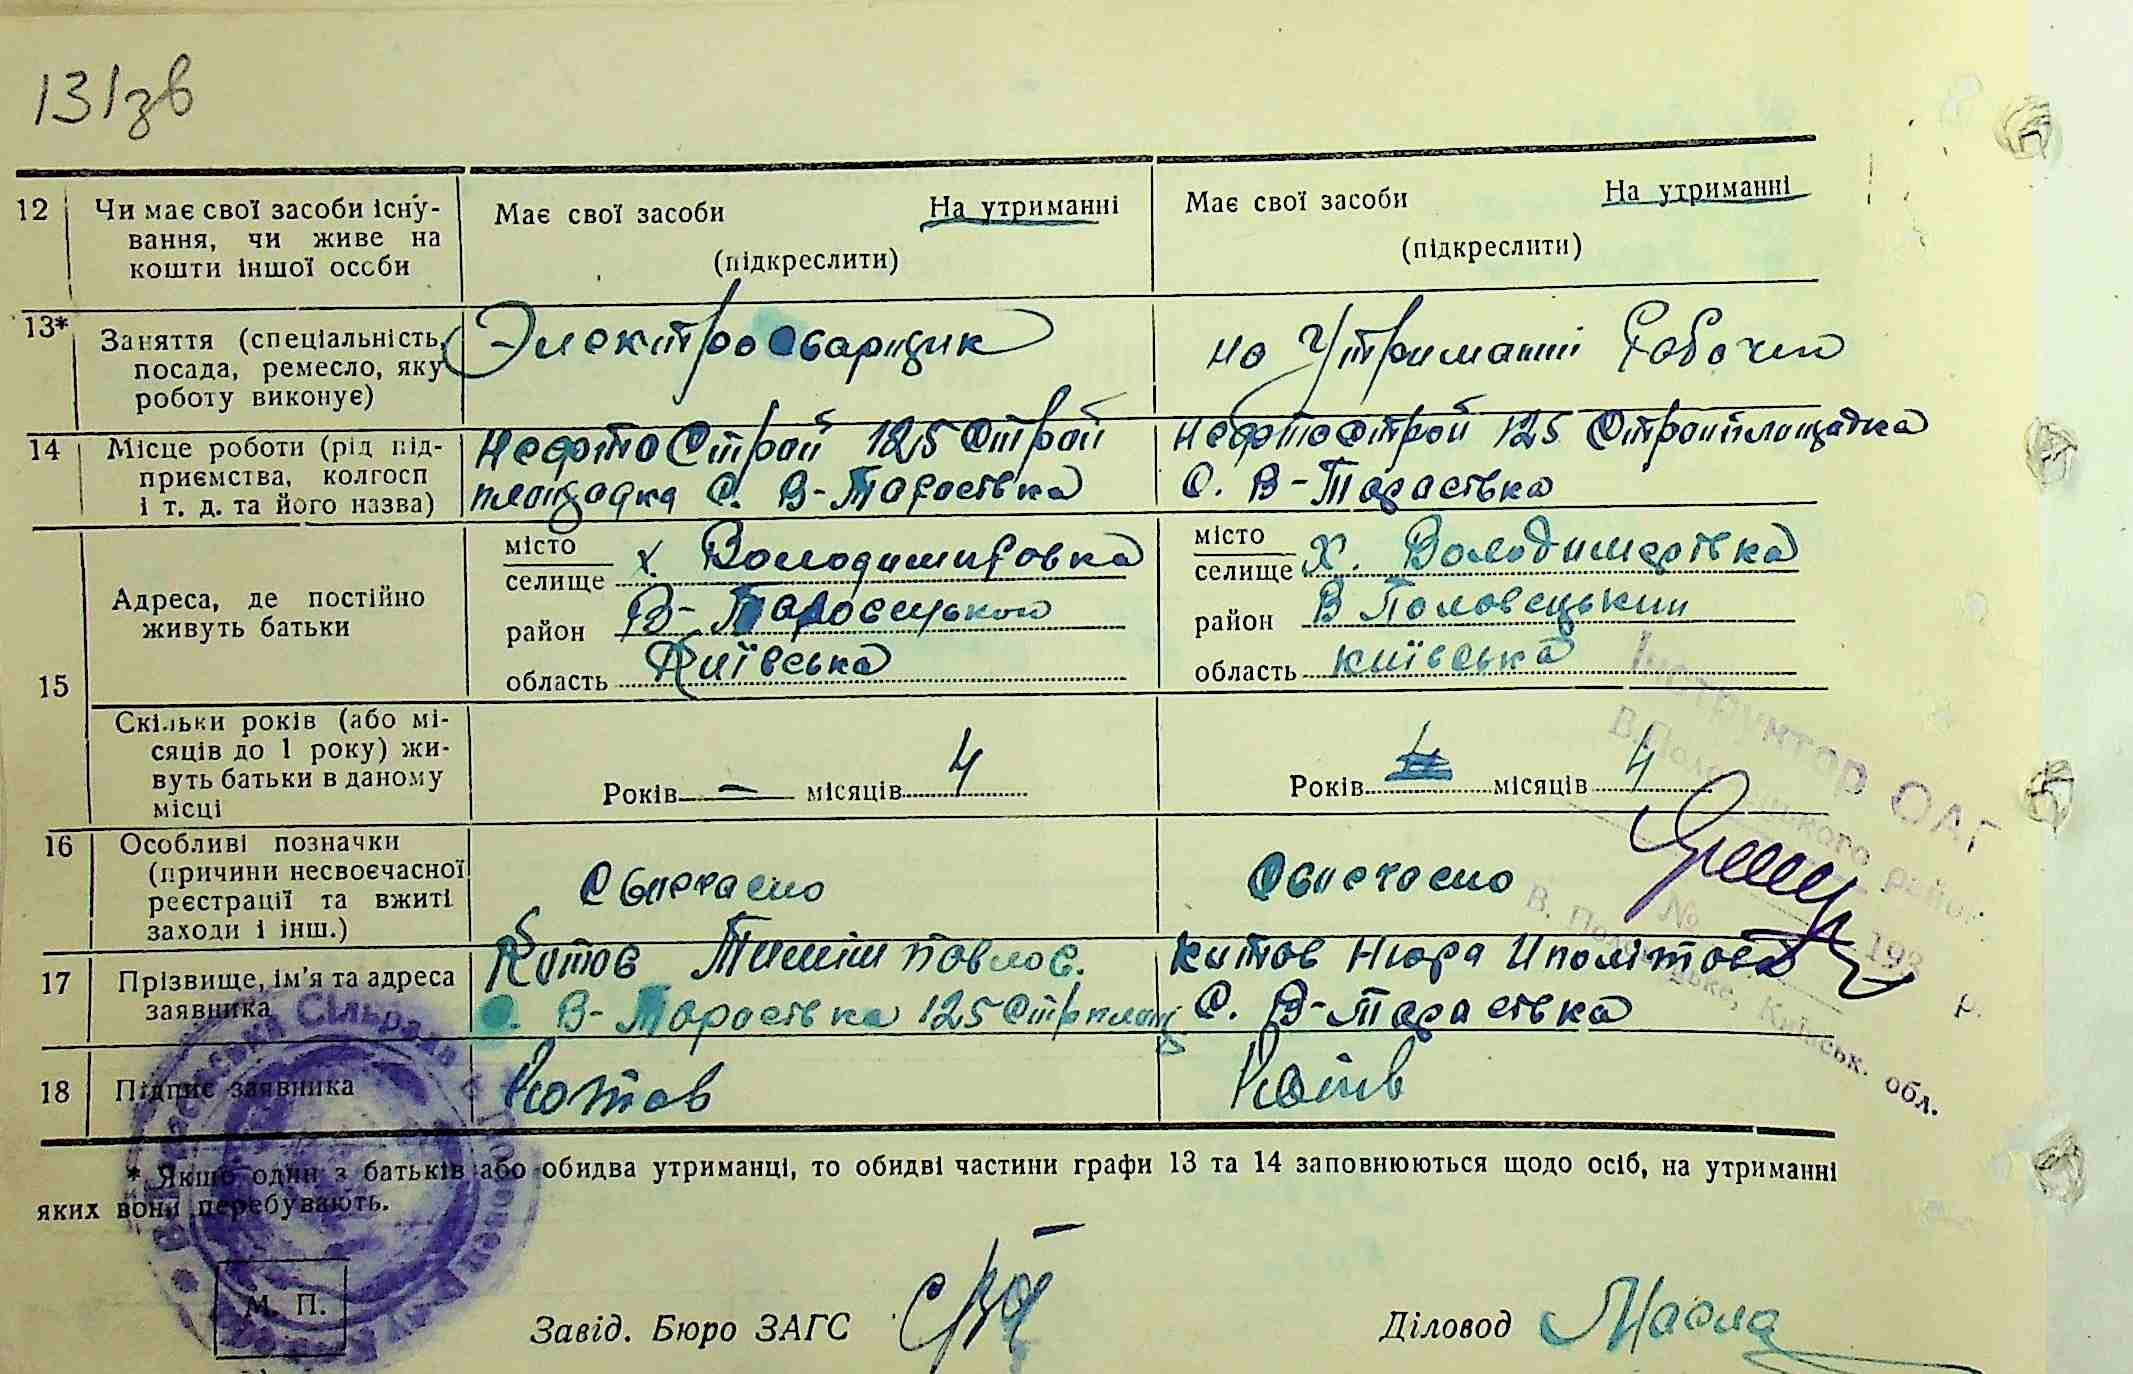 131зв
12 Чи має свої засоби існу-
вання, чи живе на
кошти іншої особи
Має свої засоби На утриманні
(підкреслити)
Має свої засоби На утриманні
(підкреслити)
13* Заняття (спеціальність,
посада, ремесло, яку
роботу виконує)
Электросварщик
на Утриманні Рабочего
14 Місце роботи (рід під-
приємства, колгосп
і т. д. та його назва)
НефтоСтрой 125 Строй
площадка С. В-Тарасівка
НефтоСтрой 125 Стройплощадка
С. В-Тарасівка
15
Адреса, де постійно
живуть батьки
місто
селище х. Володимировка
район
область Київська
місто
селище Х. Володимерівка
район В Половецький
область київська
Скільки років (або мі-
сяців до 1 року) жи-
вуть батьки в даному
місці
Років — місяців 4
Років місяців 4
16 Особливі позначки
(причини несвоєчасної
реєстрації та вжиті
заходи і інш.)
Свисчасно
Свисчасно
17 Прізвище, ім'я та адреса
заявника
Котов Тиміш Павлов.
С. В-Тарасівка 125 Стр площ
Котов Нюра Иполітова
С. В-Тарасівка
18 Підпис заявника
Котов
Котів
* Якщо один з батьків або обидва утриманці, то обидві частини графи 13 та 14 заповнюються щодо осіб, на утриманні
яких вони перебувають.
М. П.
Завід. Бюро ЗАГС
Діловод
Інструктор ОАГ
В.Половецького району
№ 193 р.
В. Половецьке, Київськ. обл.